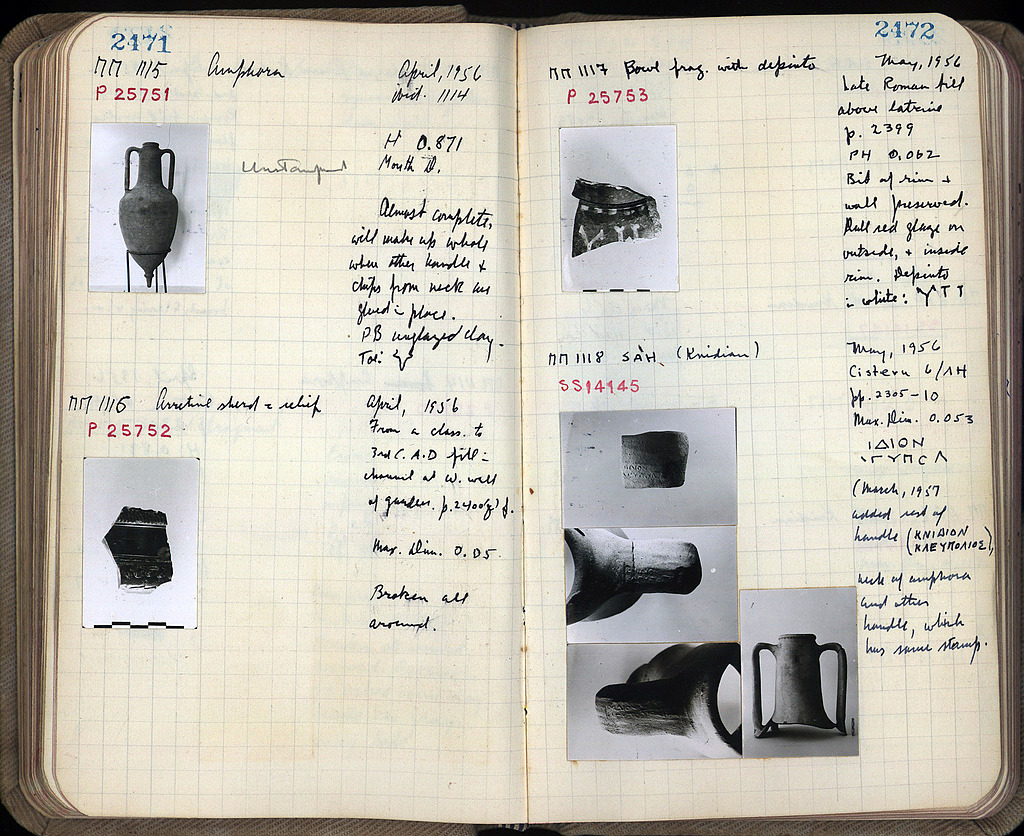 2471
ΠΠ 1115 Amphora April, 1956
P 25751 ibid. 1114
H 0.871
Unstamped Mouth D.
Almost complete,
will make up whole
when other handle +
chips from neck are
glued in place.
PB unglazed clay.
Toe:
ΠΠ 1116 Arretine sherd = relief April, 1956
P 25752 From a class. to
3rd C. A.D fill =
channel at W. wall
of garden. p. 2400
Max. Dim. 0.05.
Broken all
around.
2472
ΠΠ 1117 Bowl frag. with depinto May, 1956
P 25753 Late Roman fill
above latrine
p. 2399
PH 0.062
Bit of rim +
wall preserved.
Dull red glaze on
outside, + inside
rim. Depinto
in white: ΥΤΤ
ΠΠ 1118 SAH. (Knidian) May, 1956
SS14145 Cistern 6/ΛΗ
pp. 2305-10
Max. Dim. 0.053
ΙΔΙΟΝ
ΥΠΟΛ
(March, 1957
added rest of
handle (ΚΝΙΔΙΟΝ
ΚΛΕΥΠΟΛΙΟΣ),
neck of amphora
and other
handle, which
has same stamp.